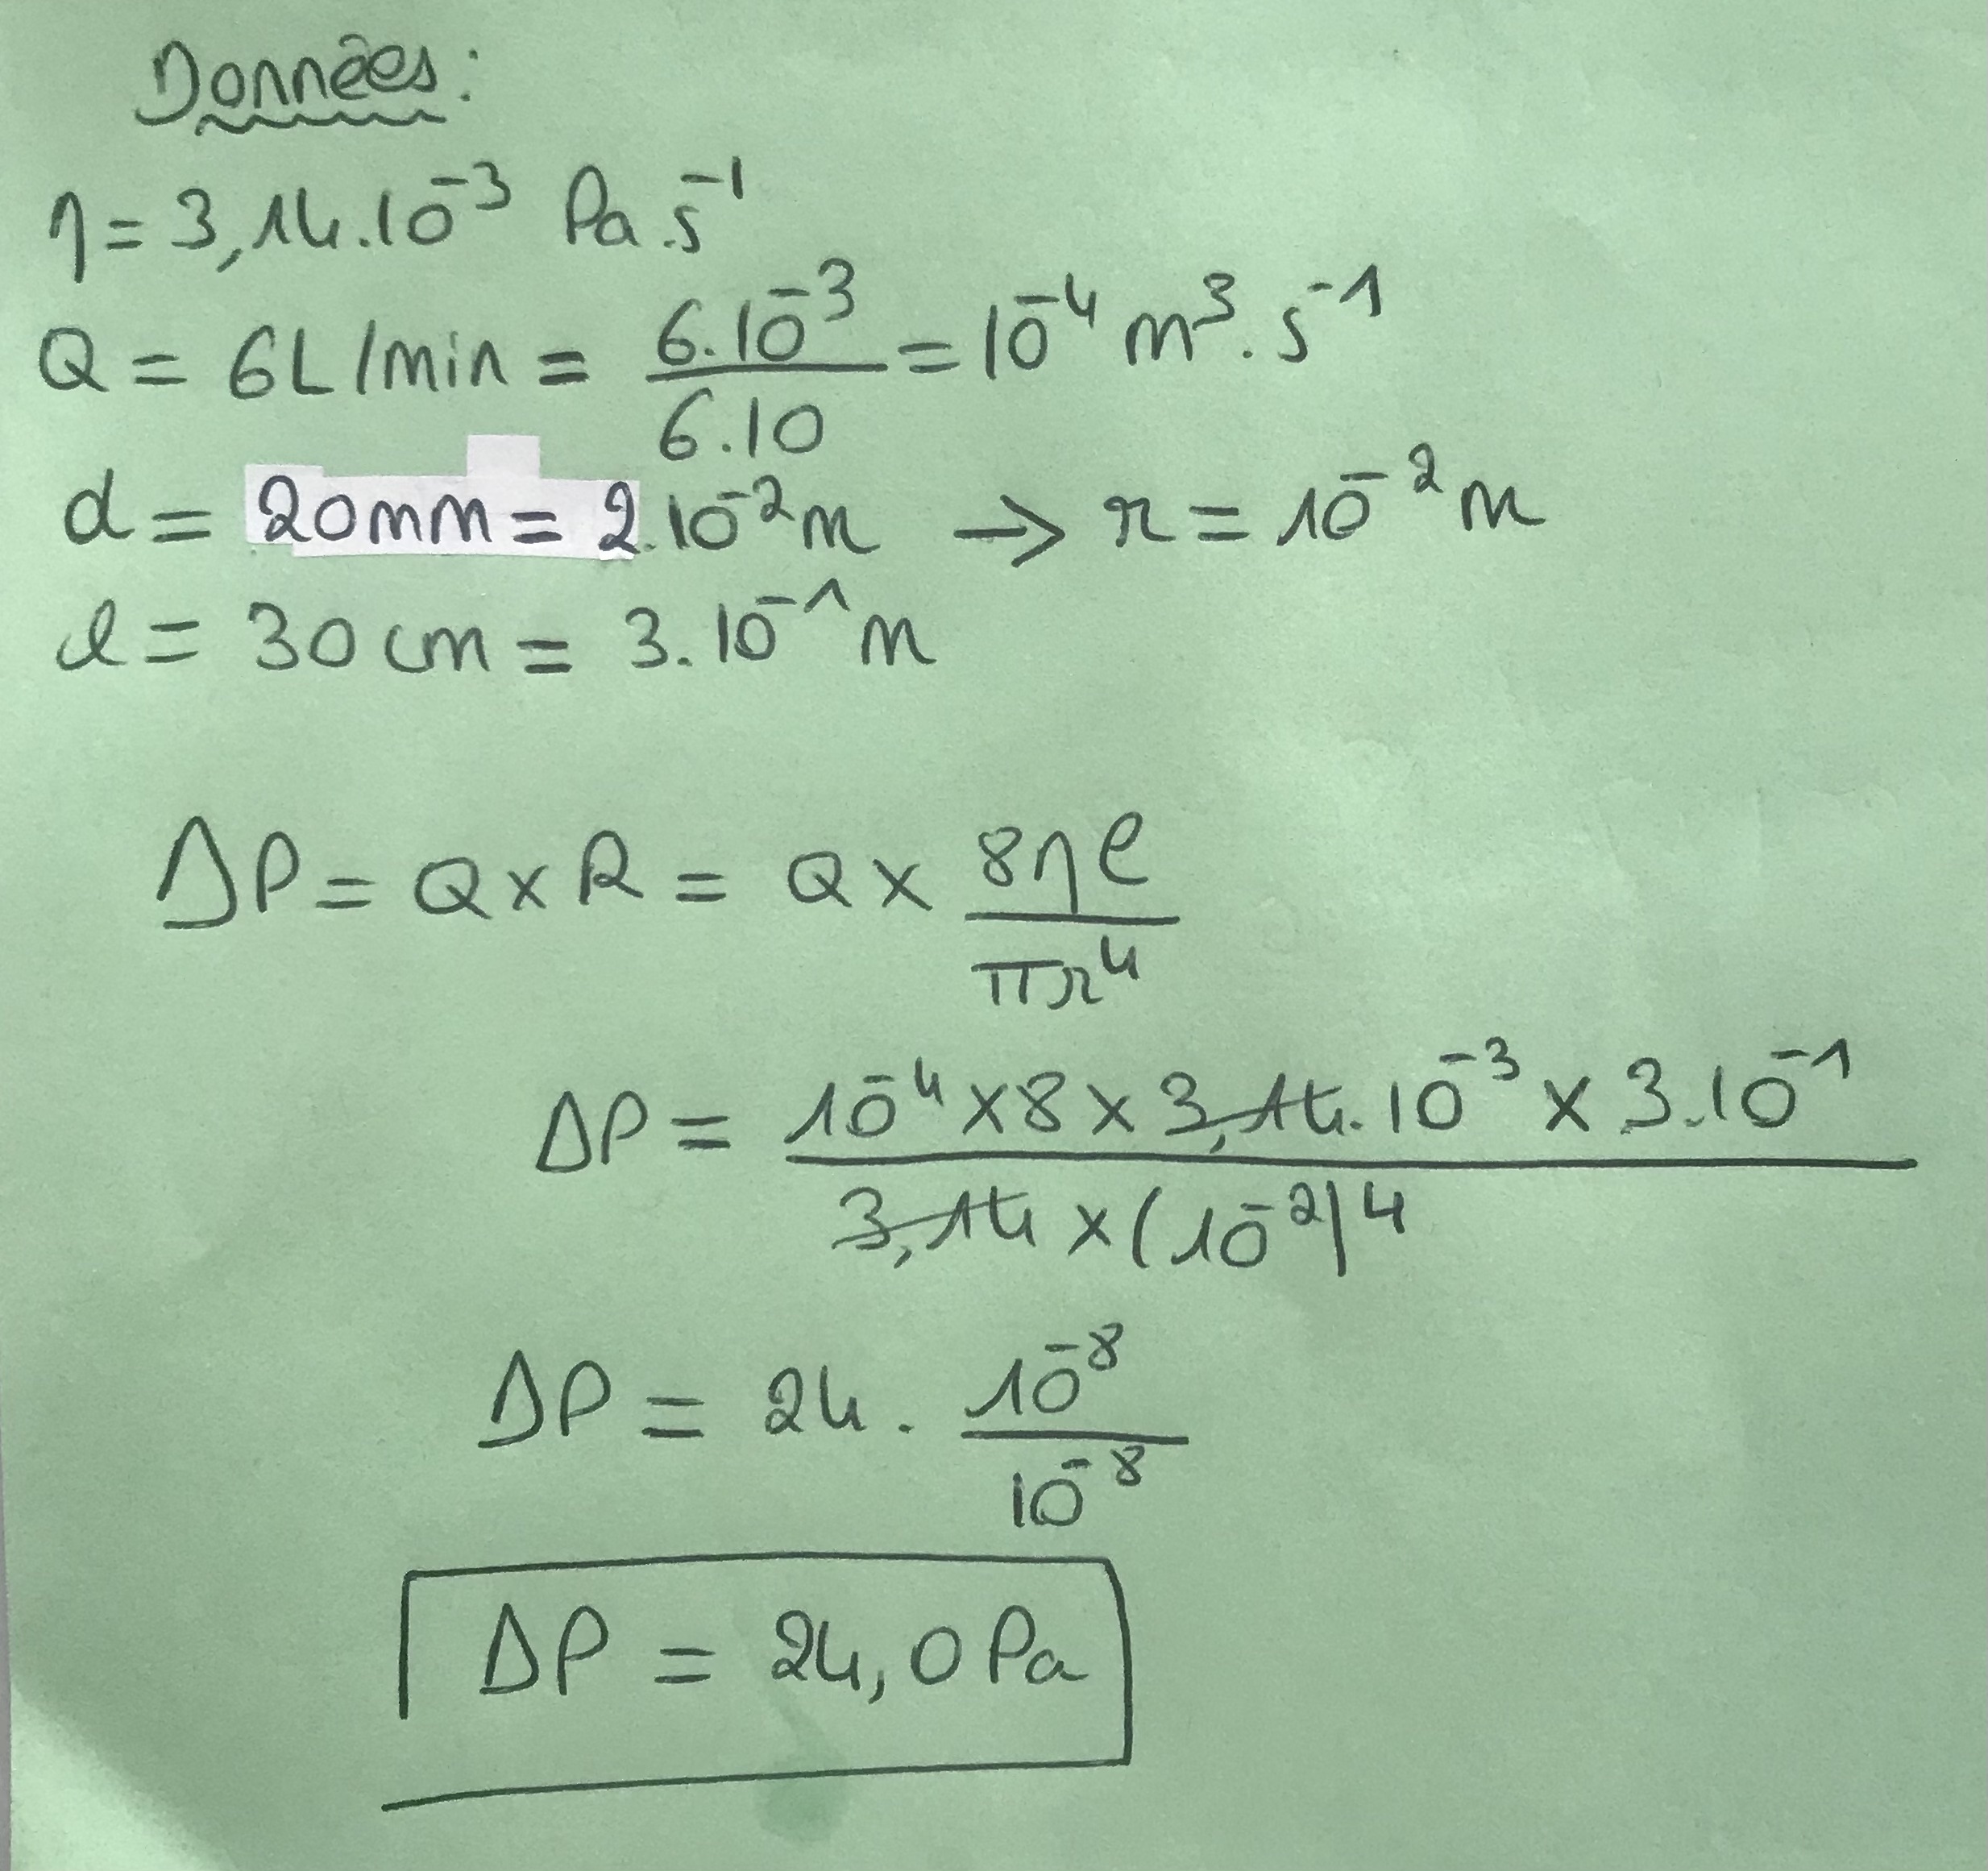 Données :
η = 3,14.10⁻³ Pa.s⁻¹
Q = 6L/min = 6.10⁻³ / 6.10 = 10⁻⁴ m³.s⁻¹
d = 20mm = 2.10⁻² m → r = 10⁻² m
l = 30 cm = 3.10⁻¹ m
ΔP = Q x R = Q x 8ηl / πr⁴
ΔP = 10⁻⁴ x 8 x 3,14.10⁻³ x 3.10⁻¹ / 3,14 x (10⁻²)⁴
ΔP = 24 . 10⁻⁸ / 10⁻⁸
ΔP = 24,0 Pa